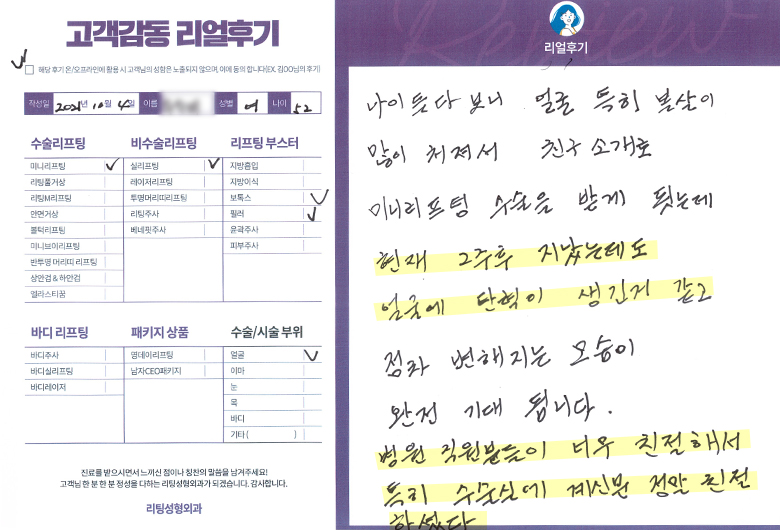 고객감동 리얼후기
해당 후기 온/오프라인에 활용 시 고객님의 성함은 노출되지 않으며, 이에 동의 합니다(EX. 김OO님의 후기)
작성일 2021년 10월 4일 이름 성별 여 나이 52
수술리프팅
미니리프팅
리팅풀거상
리팅M리프팅
안면거상
볼턱리프팅
미니브이리프팅
반투명 머리띠 리프팅
상안검 & 하안검
엘라스티꿈
비수술리프팅
실리프팅
레이저리프팅
투명머리띠리프팅
리팅주사
베네핏주사
리프팅 부스터
지방흡입
지방이식
보톡스
필러
윤곽주사
피부주사
바디 리프팅
바디주사
바디실리프팅
바디레이저
패키지 상품
영데이리프팅
남자CEO패키지
수술/시술 부위
얼굴
이마
눈
목
바디
기타 ( )
진료를 받으시면서 느끼신 점이나 칭찬의 말씀을 남겨주세요!
고객님 한 분 한 분 정성을 다하는 리팅성형외과가 되겠습니다. 감사합니다.
리팅성형외과
Review
리얼후기
나이 듯다 보니 얼굴 특히 볼살이
많이 처져서 친구 소개로
미니리프팅 수술을 받게 됫는데
현재 2주후 지났는데도
얼굴에 탄력이 생긴거 같고
점차 변해지는 모습이
완전 기대 됩니다.
병원 직원분들이 너무 친절해서
특히 수술실에 계신분 정말 친절
하셨다